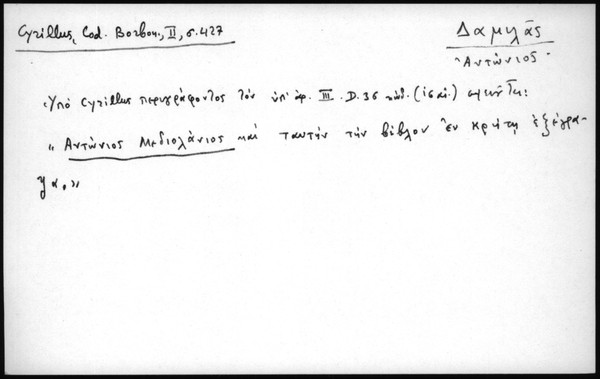 Cyrillus, Cod. Borbon., II, σ. 427
Δαμιλᾶς
Ἀντώνιος
Ὑπὸ Cyrillus περιγράφοντος τὸν ὑπ' ἀρ. III. D. 36 κώδ. (ις αἰ.)
« Ἀντώνιος Μεδιολάνιος καὶ ταυτὴν τὴν βίβλον ἐν Κρήτῃ ἐξέγρα-
ψα. »